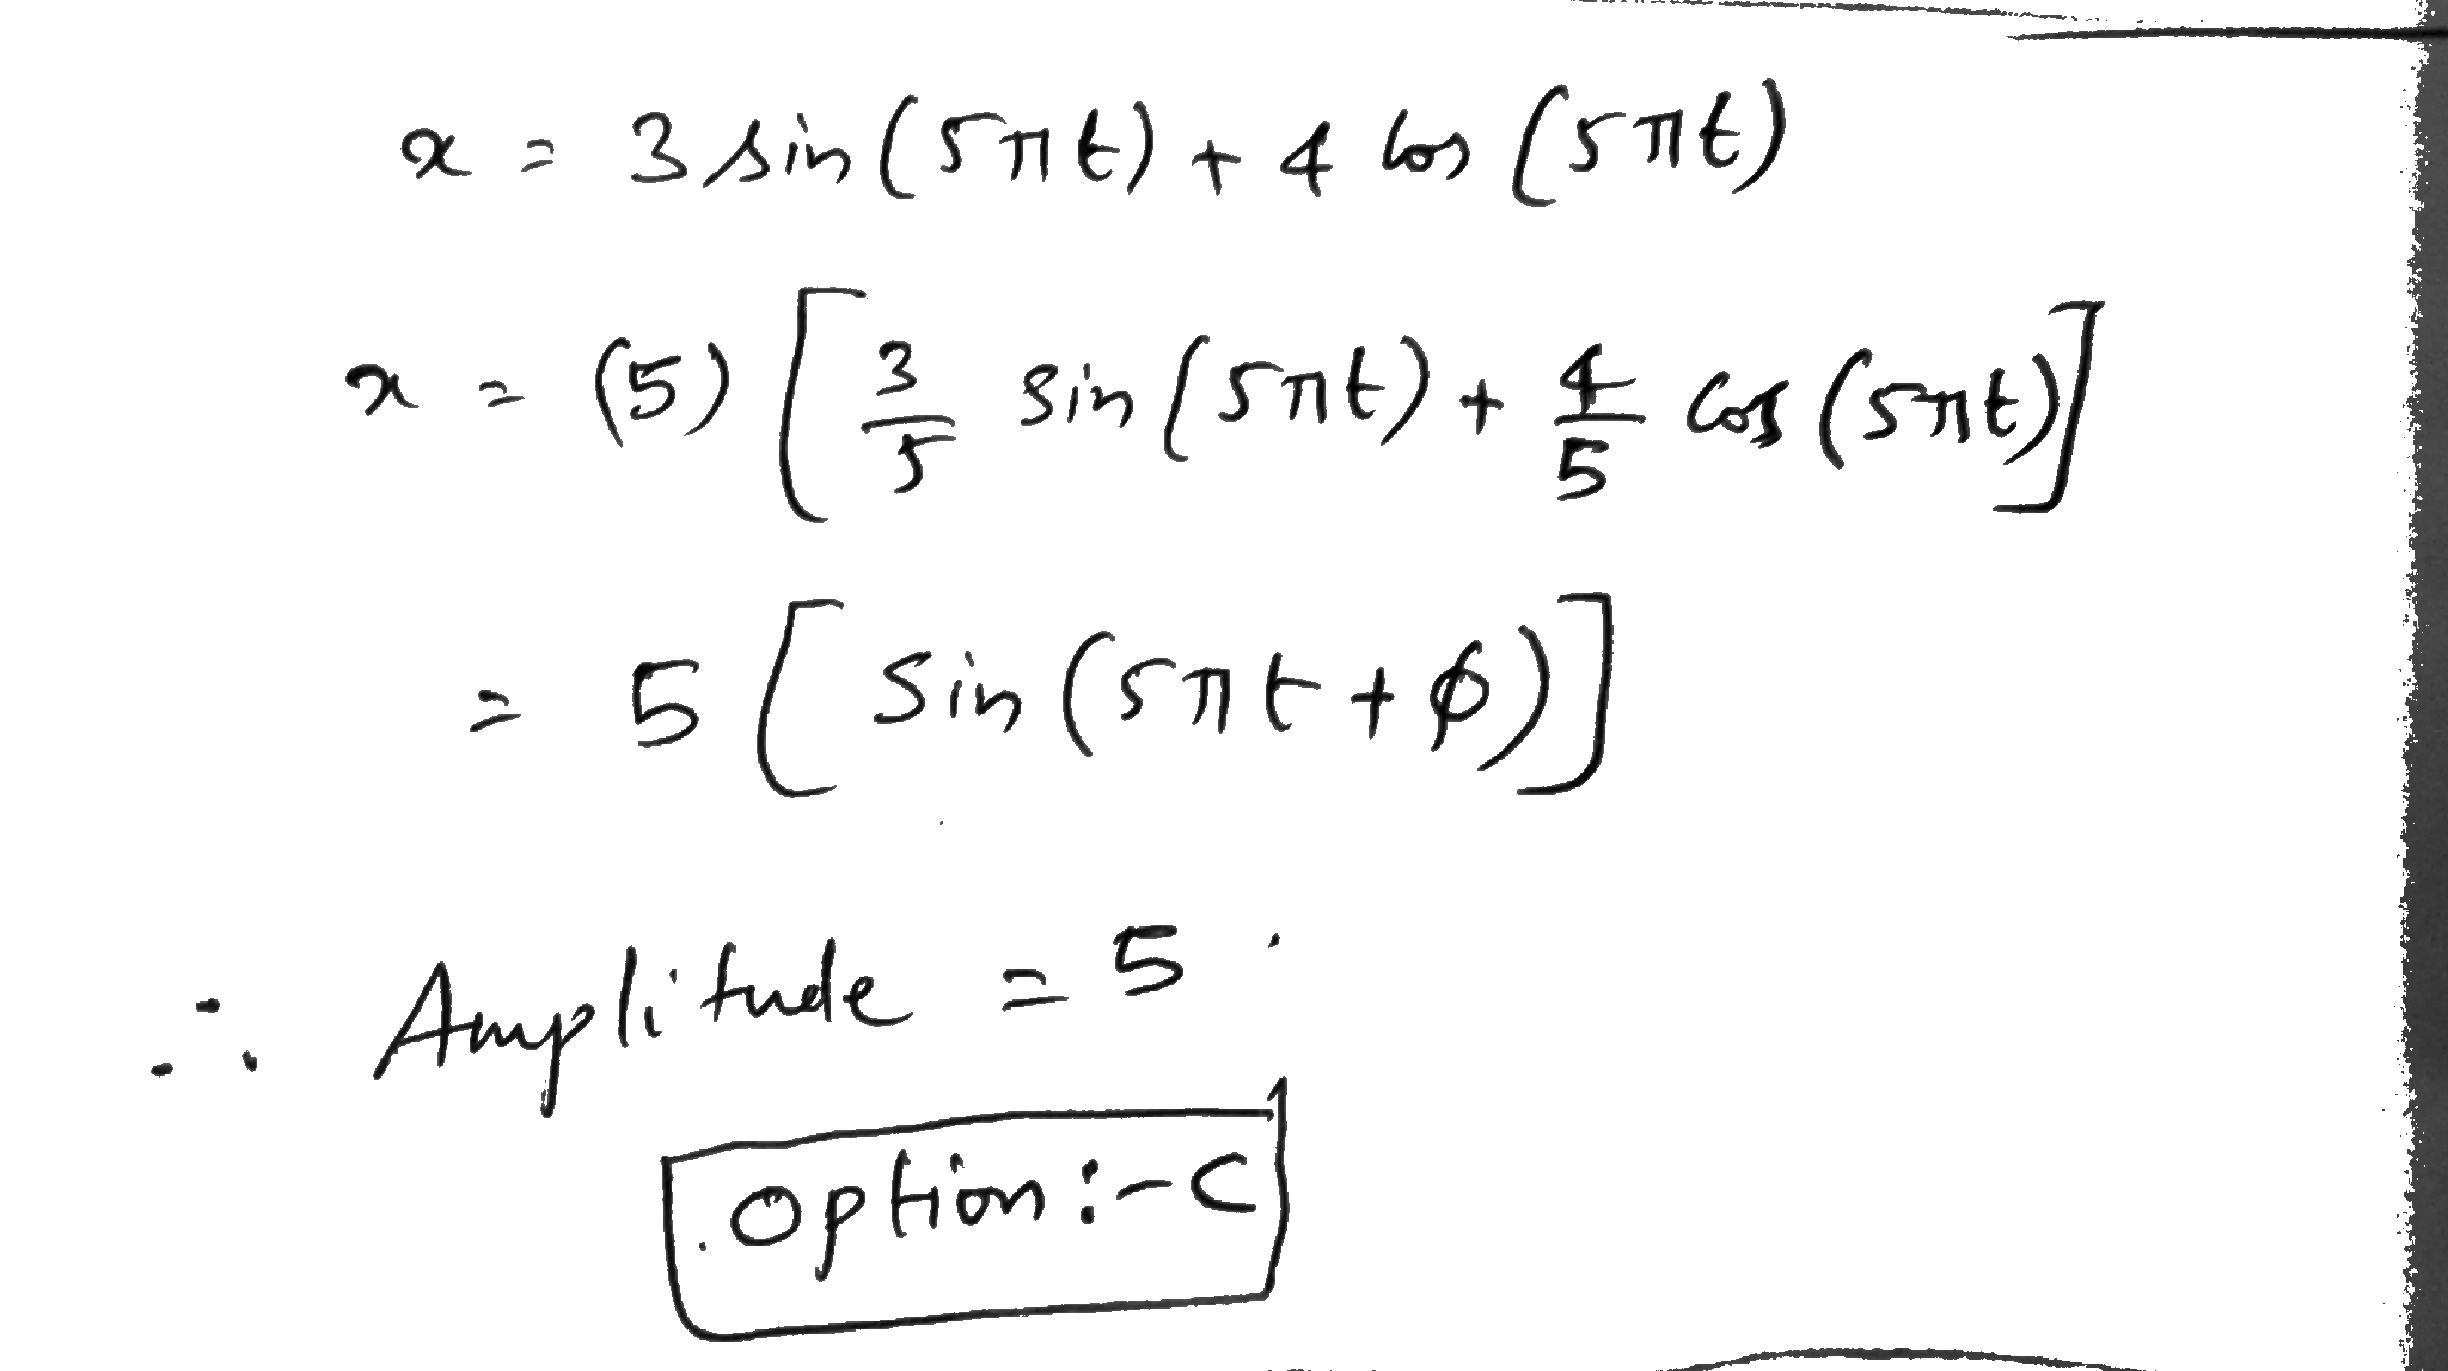 x = 3 sin(5πt) + 4 cos(5πt)
x = (5) [3/5 sin(5πt) + 4/5 cos(5πt)]
= 5 [sin(5πt + φ)]
∴ Amplitude = 5.
Option :- C